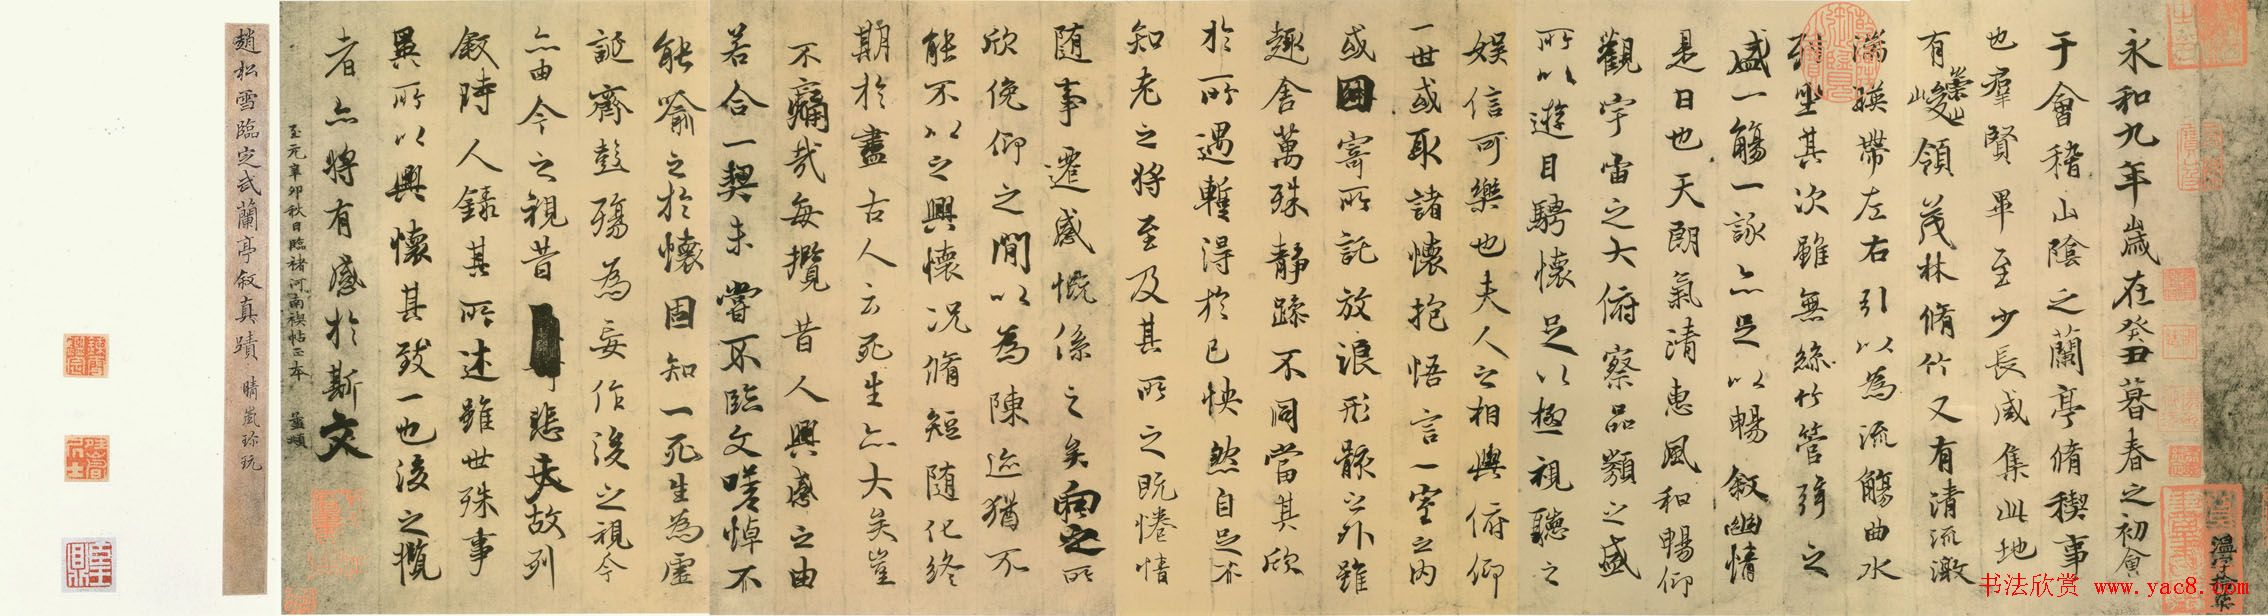 永和九年歲在癸丑暮春之初會
于會稽山陰之蘭亭脩稧事
也羣賢畢至少長咸集此地
有崇山峻領茂林脩竹又有清流激
湍暎帶左右引以為流觴曲水
列坐其次雖無絲竹管弦之
盛一觴一詠亦足以暢敘幽情
是日也天朗氣清惠風和暢仰
觀宇宙之大俯察品類之盛
所以遊目騁懷足以極視聽之
娛信可樂也夫人之相與俯仰
一世或取諸懷抱悟言一室之內
或因寄所託放浪形骸之外雖
趣舍萬殊靜躁不同當其欣
於所遇蹔得於己怏然自足不
知老之將至及其所之既惓情
隨事遷感慨係之矣向之所
欣俛仰之閒以為陳迹猶不
能不以之興懷況脩短隨化終
期於盡古人云死生亦大矣豈
不痛哉每攬昔人興感之由
若合一契未嘗不臨文嗟悼不
能喻之於懷固知一死生為虛
誕齊彭殤為妄作後之視今
亦由今之視昔悲夫故列
敘時人錄其所述雖世殊事
異所以興懷其致一也後之攬
者亦將有感於斯文
至元辛卯秋日臨褚河南禊帖正本 孟頫
趙松雪臨定武蘭亭敘真蹟 晴嵐珎玩
书法欣赏 www.yac8.com